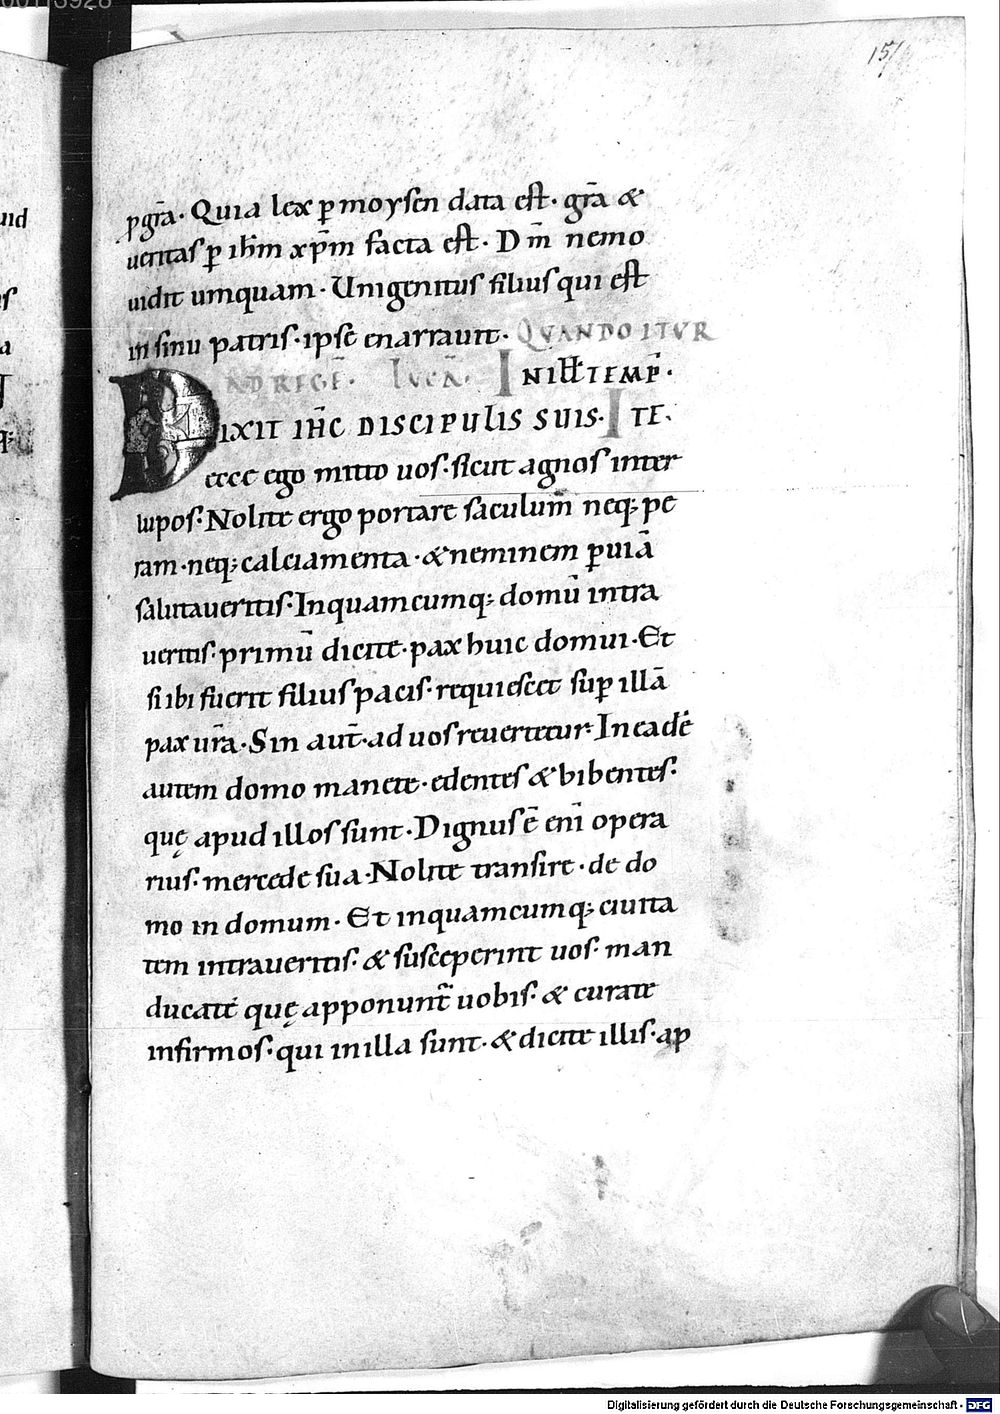 151
p gr̄a. Quia lex ꝑ moysen data est. gr̄a &
ueritas ꝑ ih̄m xp̄m facta est. Dm̄ nemo
uidit umquam. Unigenitus filius qui est
in sinu patris. ipse enarrauit. QUANDO ITUR
AD REGĒ. LUCĀ. IN ILL TEMP̄.
DIXIT IH̄C DISCIPULIS SUIS. ITE.
ecce ego mitto uos. sicut agnos inter
lupos. Nolite ergo portare saculum̄ neq; pe
ram. neq; calciamenta. & neminem ꝑ uiā
salutaueritis. Inquamcumq; domū intra
ueritis. primū dicite. pax huic domui. Et
si ibi fuerit filius pacis. requiescet suꝑ illā
pax ur̄a. Sin aut̄. ad uos reuertetur. In eadē
autem domo manete. edentes & bibentes.
quę apud illos sunt. Dignus ē eni̅ opera
rius. mercede sua. Nolite transire. de do
mo in domum. Et inquamcumq; ciuita
tem intraueritis. & susceperint uos. man
ducate quę apponunt̄ uobis. & curate
infirmos. qui in illa sunt. & dicite illis. ap
Digitalisierung gefördert durch die Deutsche Forschungsgemeinschaft - DFG